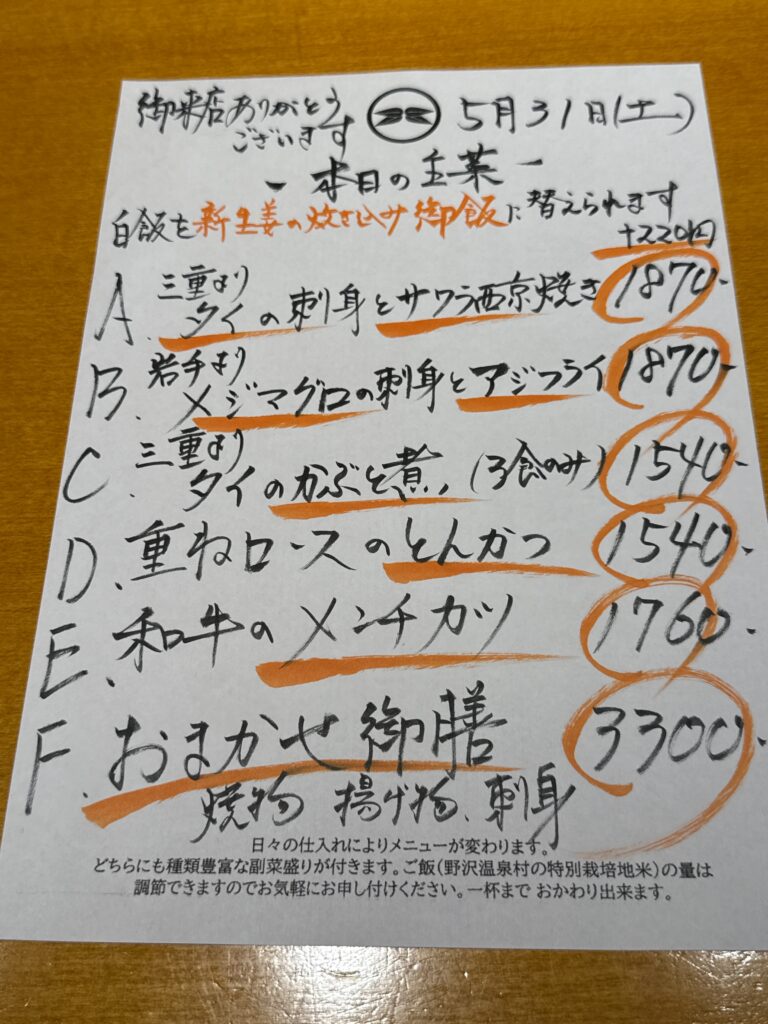 御来店ありがとう
ございます
5月31日(土)
- 本日の主菜 -
白飯を新生姜の炊き込み御飯に替えられます
+220円
A. 三重より
タイの刺身とサワラ西京焼き 1870-
B. 岩手より
メジマグロの刺身とアジフライ 1870-
C. 三重より
タイのかぶと煮 (3食のみ) 1540-
D. 重ねロースのとんかつ 1540-
E. 和牛のメンチカツ 1760-
F. おまかせ御膳 3300-
焼物 揚げ物、刺身
日々の仕入れによりメニューが変わります。
どちらにも種類豊富な副菜盛りが付きます。ご飯(野沢温泉村の特別栽培地米)の量は
調節できますのでお気軽にお申し付けください。一杯まで おかわり出来ます。